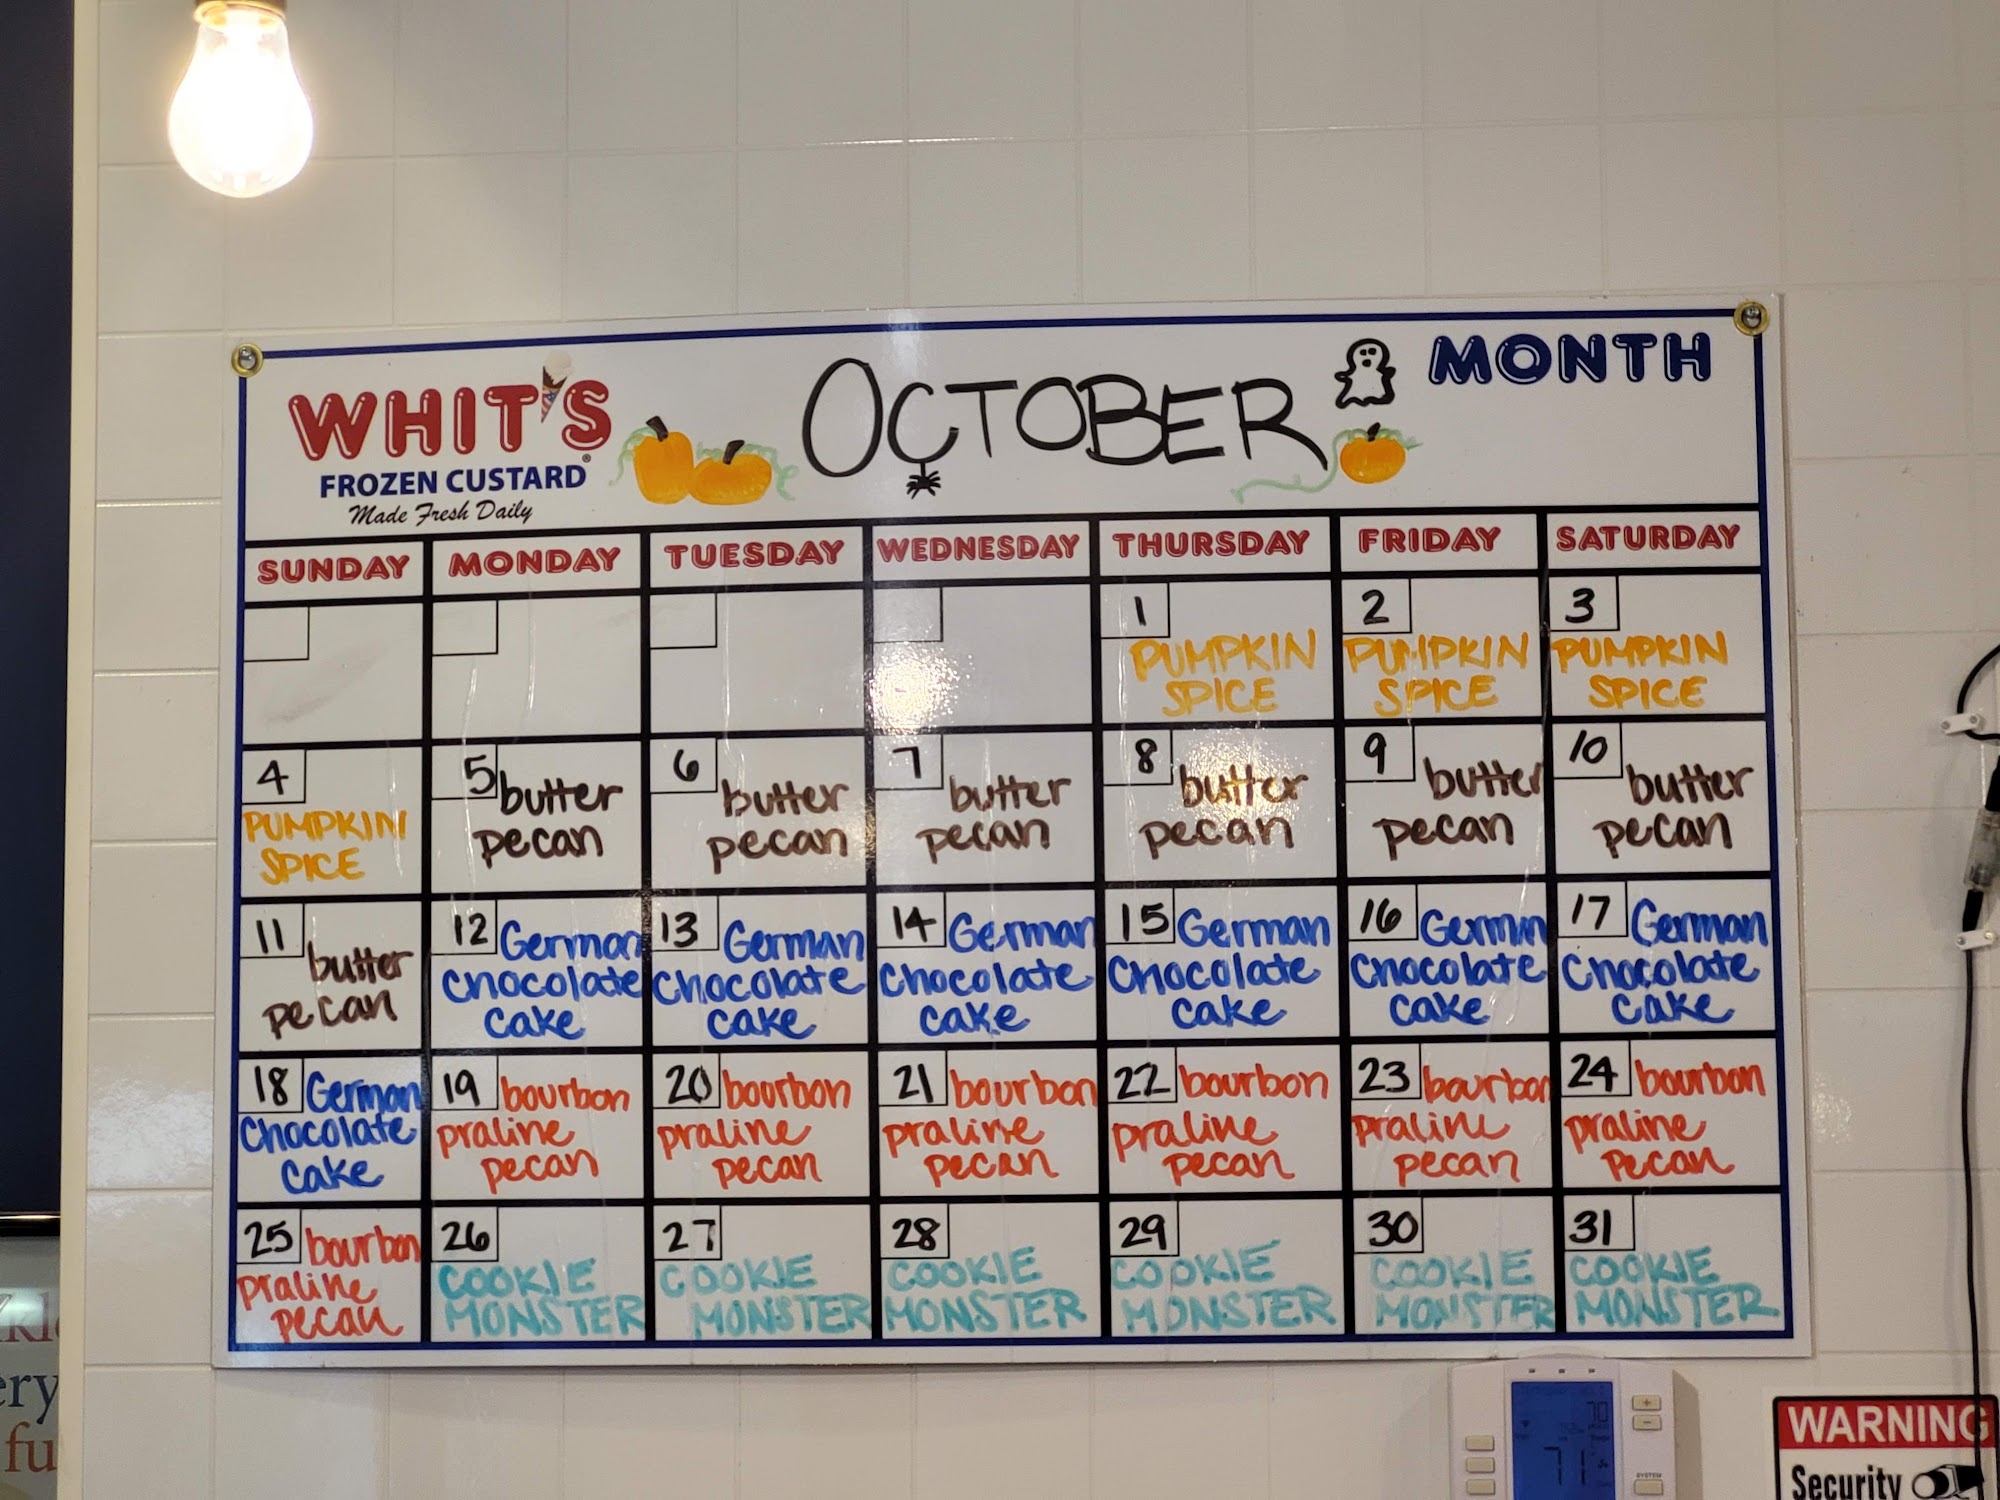 WHIT'S
FROZEN CUSTARD®
Made Fresh Daily
OCTOBER
MONTH
SUNDAY MONDAY TUESDAY WEDNESDAY THURSDAY FRIDAY SATURDAY
1
PUMPKIN
SPICE
2
PUMPKIN
SPICE
3
PUMPKIN
SPICE
4
PUMPKIN
SPICE
5 butter
pecan
6 butter
pecan
7 butter
pecan
8 butter
pecan
9 butter
pecan
10 butter
pecan
11 butter
pecan
12 German
Chocolate
Cake
13 German
Chocolate
Cake
14 German
Chocolate
Cake
15 German
Chocolate
Cake
16 German
Chocolate
Cake
17 German
Chocolate
Cake
18 German
Chocolate
Cake
19 bourbon
praline
pecan
20 bourbon
praline
pecan
21 bourbon
praline
pecan
22 bourbon
praline
pecan
23 bourbon
praline
pecan
24 bourbon
praline
pecan
25 bourbon
praline
pecan
26
COOKIE
MONSTER
27
COOKIE
MONSTER
28
COOKIE
MONSTER
29
COOKIE
MONSTER
30
COOKIE
MONSTER
31
COOKIE
MONSTER
70
71
SYSTEM
WARNING
Security
ery
fu